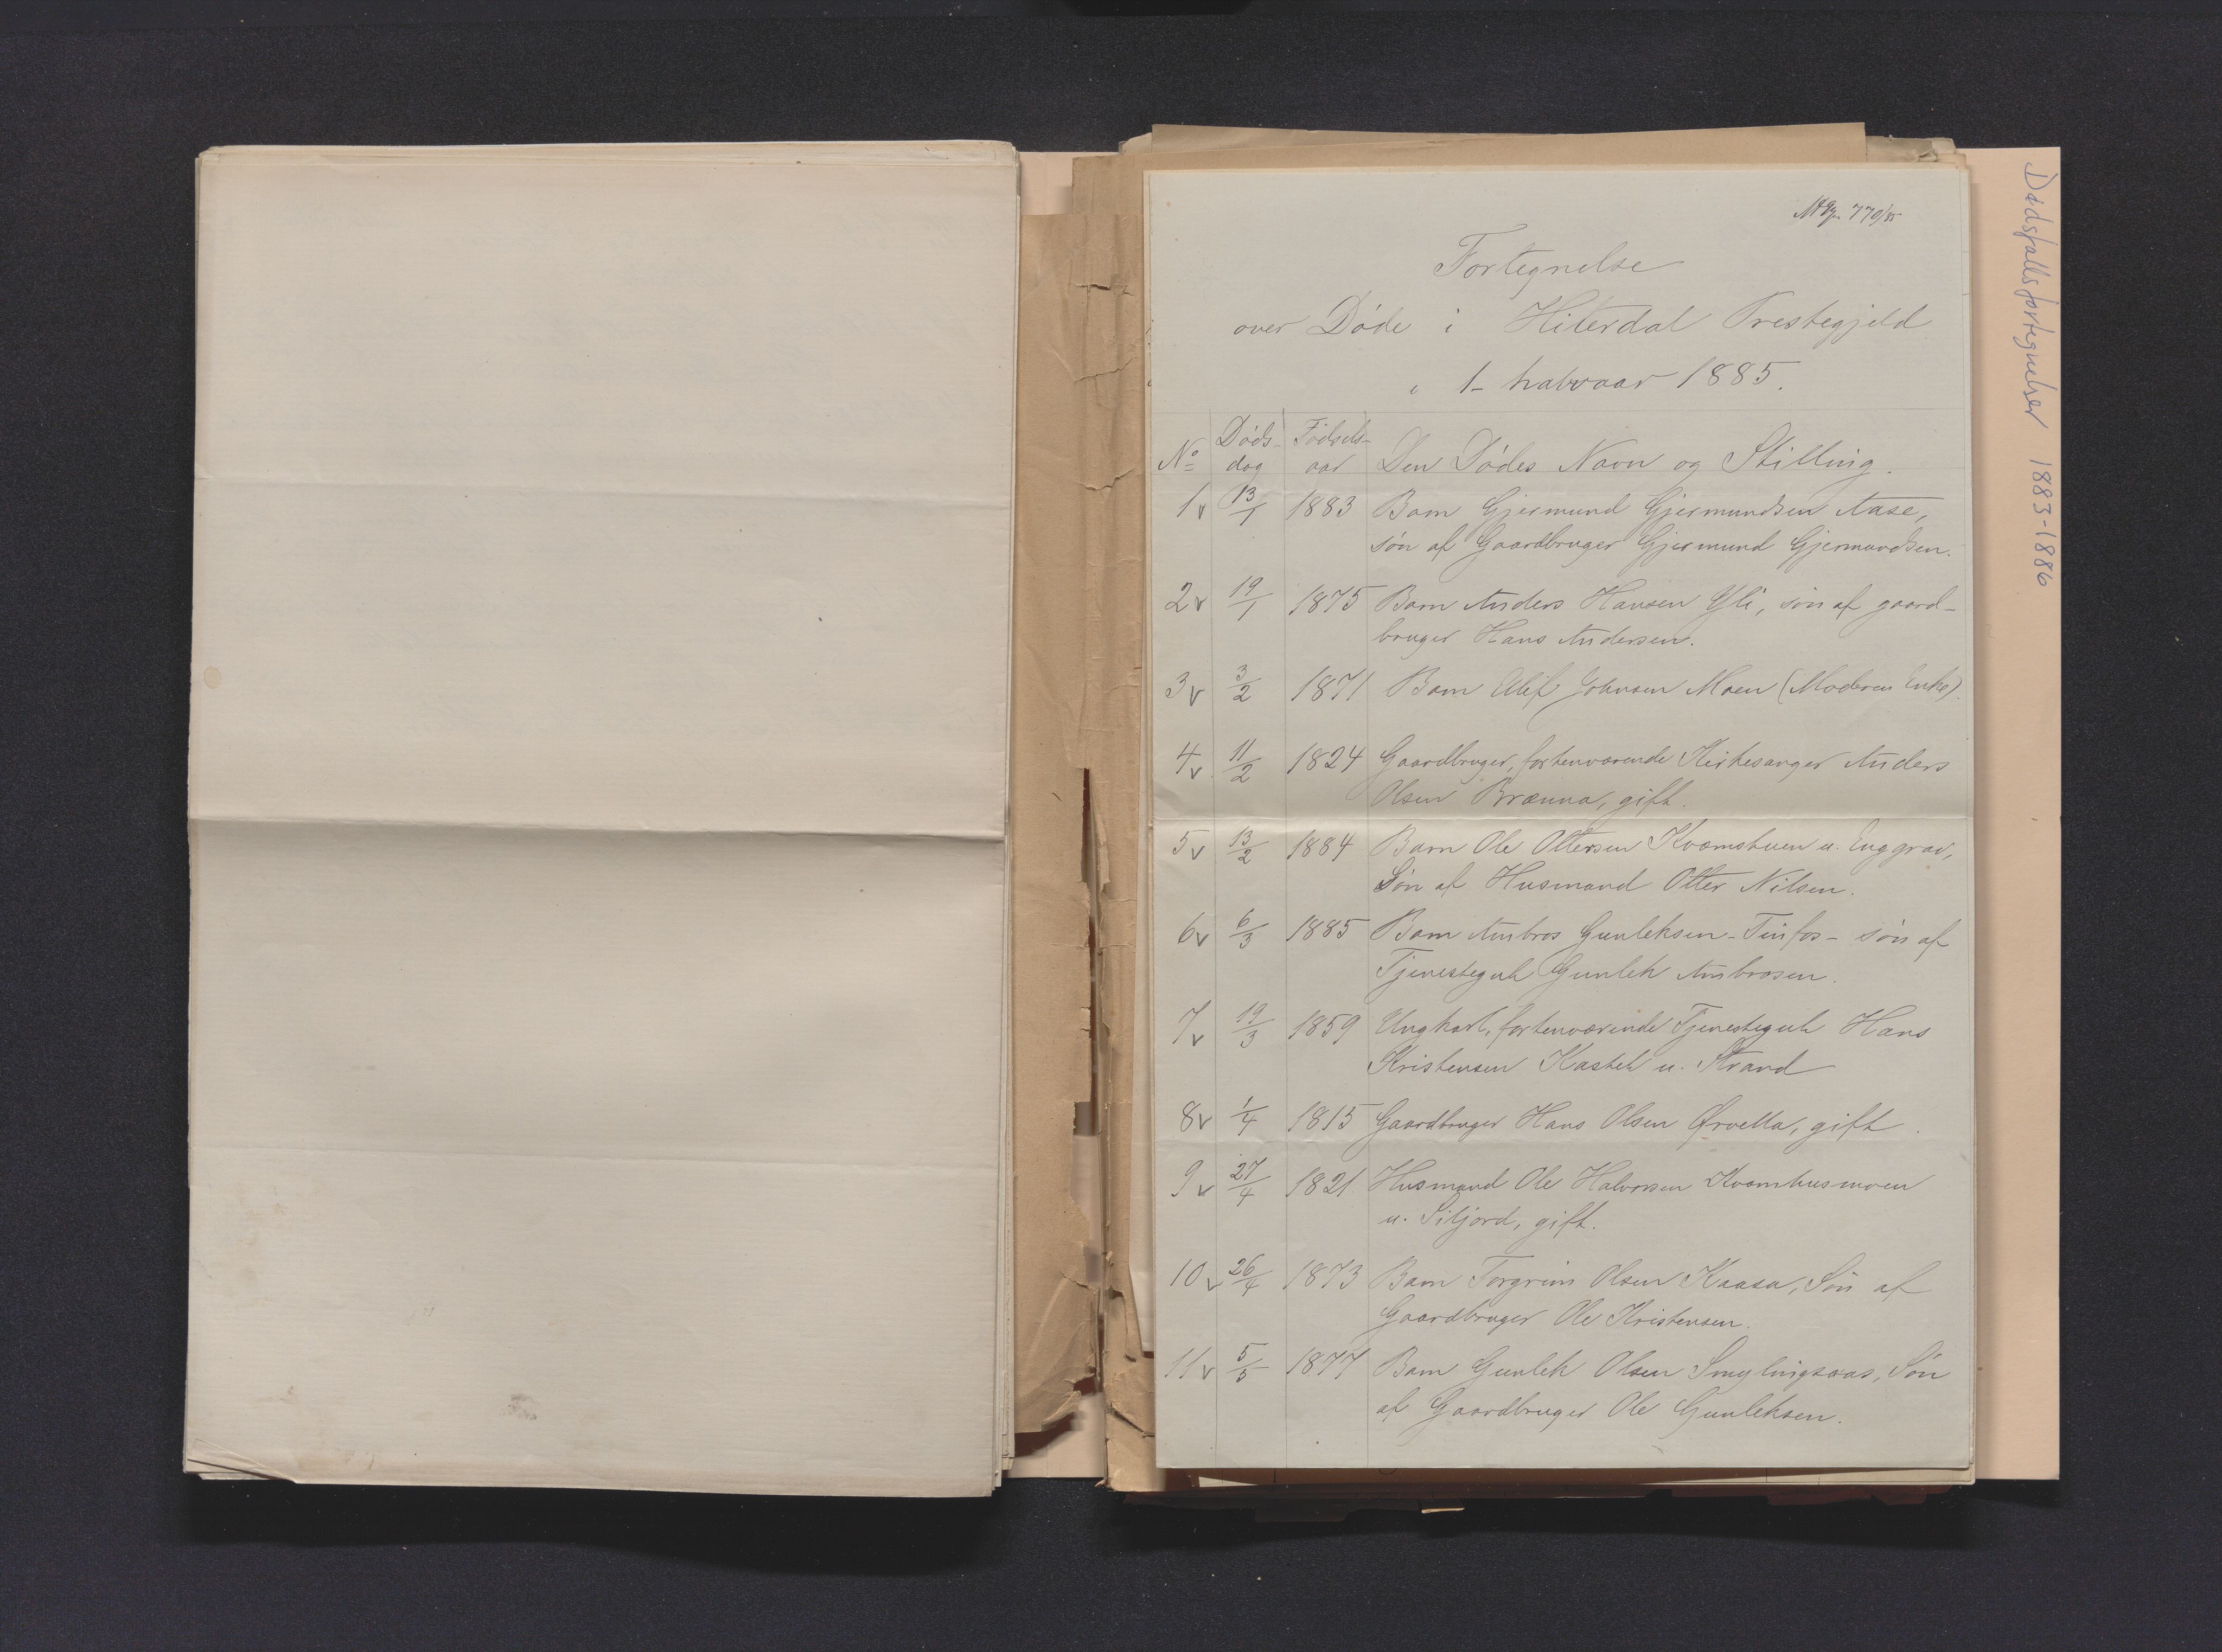 770/85
Fortegnelse
over Døde i Hiterdal Prestegjeld
i 1_ halvaar 1885.
No Døds-dag Fødsels-aar Den Dødes Navn og Stilling.
1 v 13/1 1883 Barn Gjermund Gjermundsen Aase,
søn af Gaardbruger Gjermund Gjermundsen.
2 v 19/1 1875 Barn Anders Hansen Yli, søn af gaard-
bruger Hans Andersen.
3 v 3/2 1871 Barn Olif Johnsen Moen (Moderen Enke).
4 v 11/2 1824 Gaardbruger, forhenværende Kirkesanger Anders
Olsen Brænna, gift.
5 v 13/2 1884 Barn Ole Ottersen Kvæmstuen u. Enggrav,
Søn af Husmand Otter Nilsen.
6 v 6/3 1885 Barn Ambros Gunleksen - Tinfos - søn af
Tjenestegut Gunlek Ambrosen.
7 v 19/3 1859 Ungkarl, forhenværende Tjenestegut Hans
Kristensen Kasteh u. Strand
8 v 1/4 1815 Gaardbruger Hans Olsen Ørvella, gift.
9 v 27/4 1821 Husmand Ole Halvorsen Kvamhusmoen
u. Siljord, gift.
10 v 26/4 1873 Barn Torgrim Olsen Kaasa, Søn af
Gaardbruger Ole Kristensen.
11 v 5/5 1877 Barn Gunlek Olsen Smylingsaas, Søn
af Gaardbruger Ole Gunleksen.
Dødsfallsfortegnelser 1883-1886